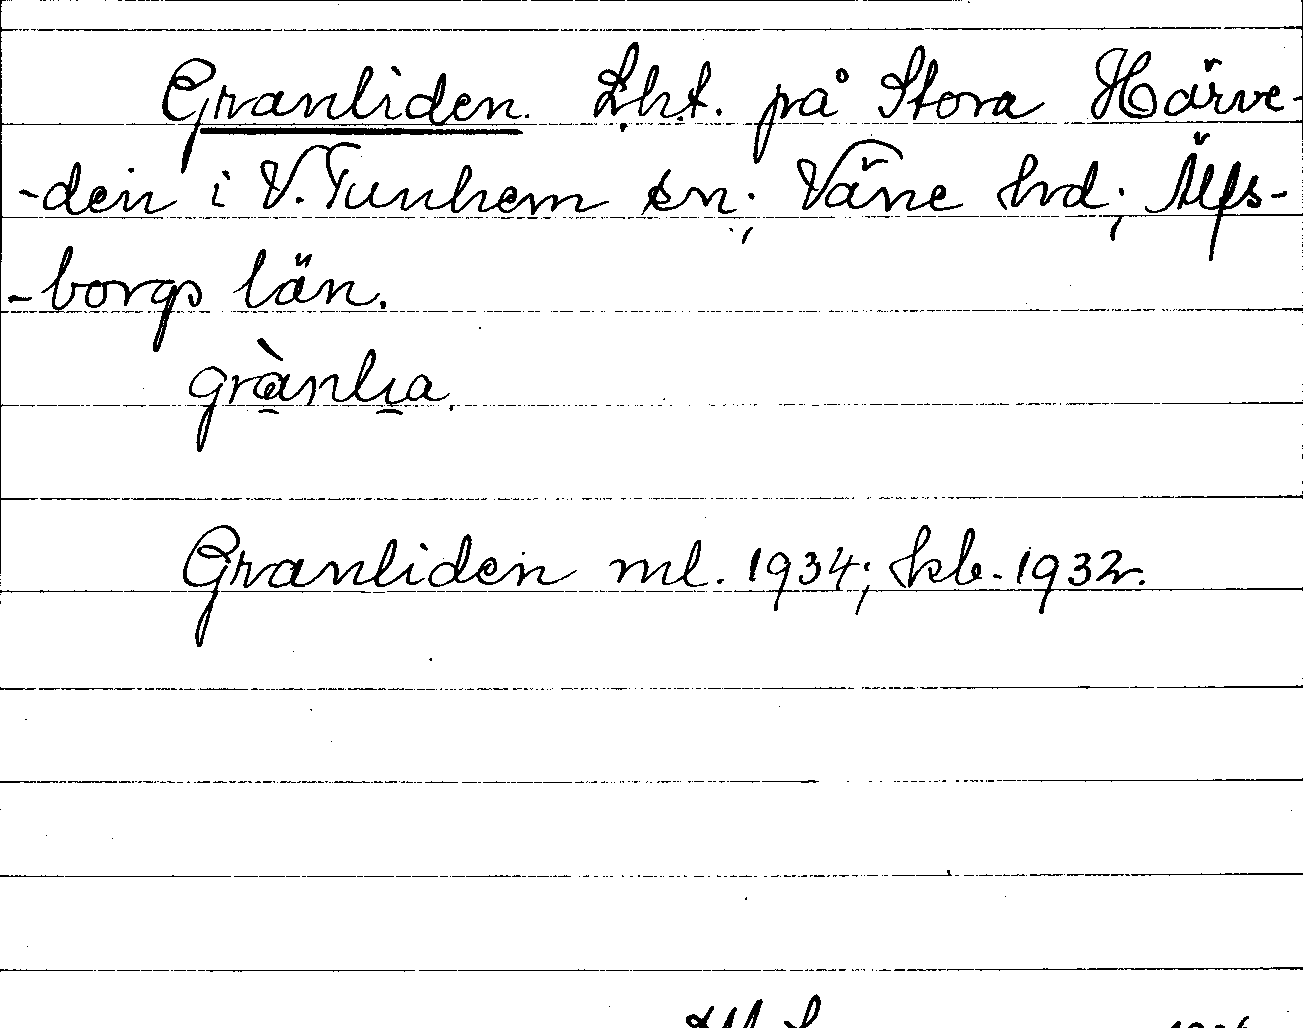 Granliden. Lht. på Stora Härve-
-den i V. Tunhem sn; Väne hd; Älfs-
-borgs län.
grànlıa.
Granliden ml. 1934; kb. 1932.